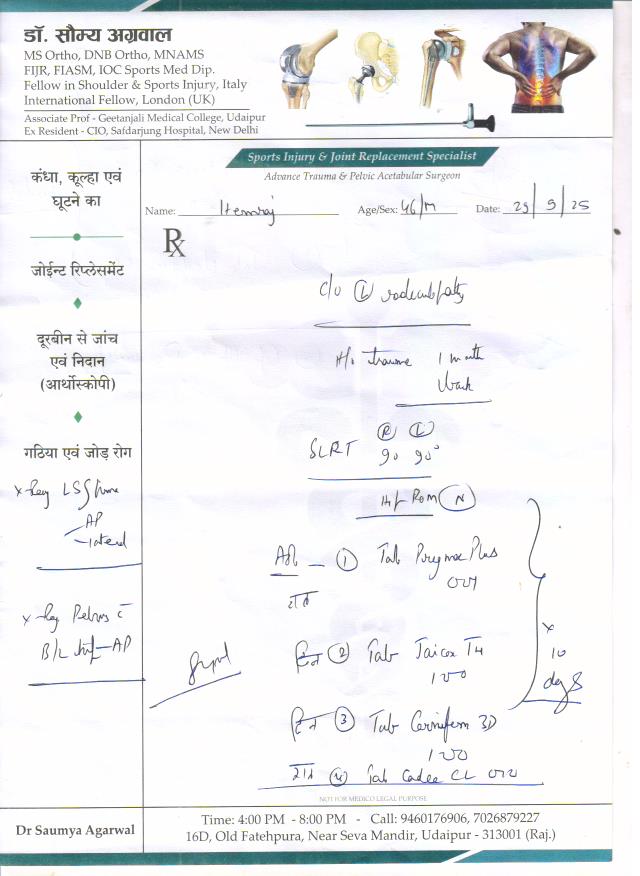 डॉ. सौम्य अग्रवाल
MS Ortho, DNB Ortho, MNAMS
FIJR, FIASM, IOC Sports Med Dip.
Fellow in Shoulder & Sports Injury, Italy
International Fellow, London (UK)
Associate Prof - Geetanjali Medical College, Udaipur
Ex Resident - CIO, Safdarjung Hospital, New Delhi
Sports Injury & Joint Replacement Specialist
Advance Trauma & Pelvic Acetabular Surgeon
Name: Hemraj Age/Sex: 46/M Date: 29/9/25
Rx
कंधा, कूल्हा एवं
घूटने का
जोईन्ट रिप्लेसमेंट
दूरबीन से जांच
एवं निदान
(आर्थोस्कोपी)
गठिया एवं जोड़ रोग
X-Ray LS Spine
AP
lateral
X-Ray Pelvis c̄
B/L hip AP
C/o (L) radiculopathy
H/o trauma 1 month
back
SLRT (R) (L)
90 90°
Hip ROM (N)
(1) Tab Plus
रात
दिन (2) Tab T4
100
दिन (3) Tab 3D
100
रात (4) Tab CL
x
10
days
NOT FOR MEDICO LEGAL PURPOSE
Dr Saumya Agarwal
Time: 4:00 PM - 8:00 PM - Call: 9460176906, 7026879227
16D, Old Fatehpura, Near Seva Mandir, Udaipur - 313001 (Raj.)